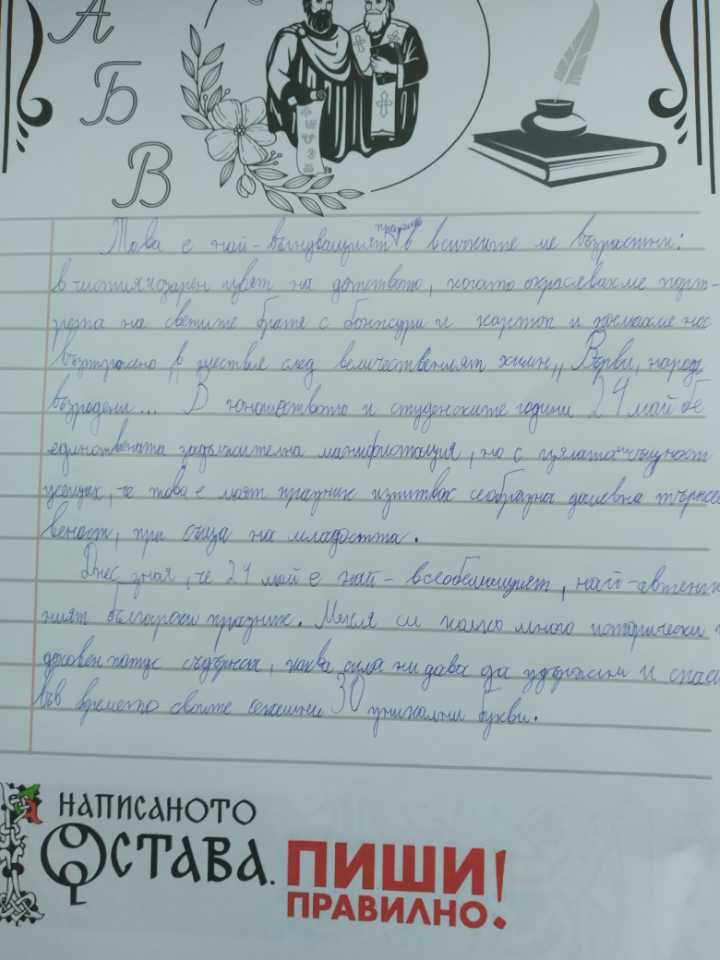 А
Б
В
Това е най- празник в всичките ми възрасти:
в цвят на детството, когато окрасявахме порт-
рета на светите братя с божури и картички и
в шествие след величественият химн „Върви, народе
възродени... В юношеството и студентските години 24 май бе
единствената задължителна манифестация, но с цялата същност
усещах, че това е моят празник душевна тържест
веност, при съща на младостта.
Днес зная, че 24 май е най- всеобемащият, най-автентич
ният български празник. Мисля си колко много исторически и
духовен патус съдържа, каква сила ни дава да удържим и спасим
във времето своите сегашни 30 уникални букви.
НАПИСАНОТО
ОСТАВА.
ПИШИ
ПРАВИЛНО!